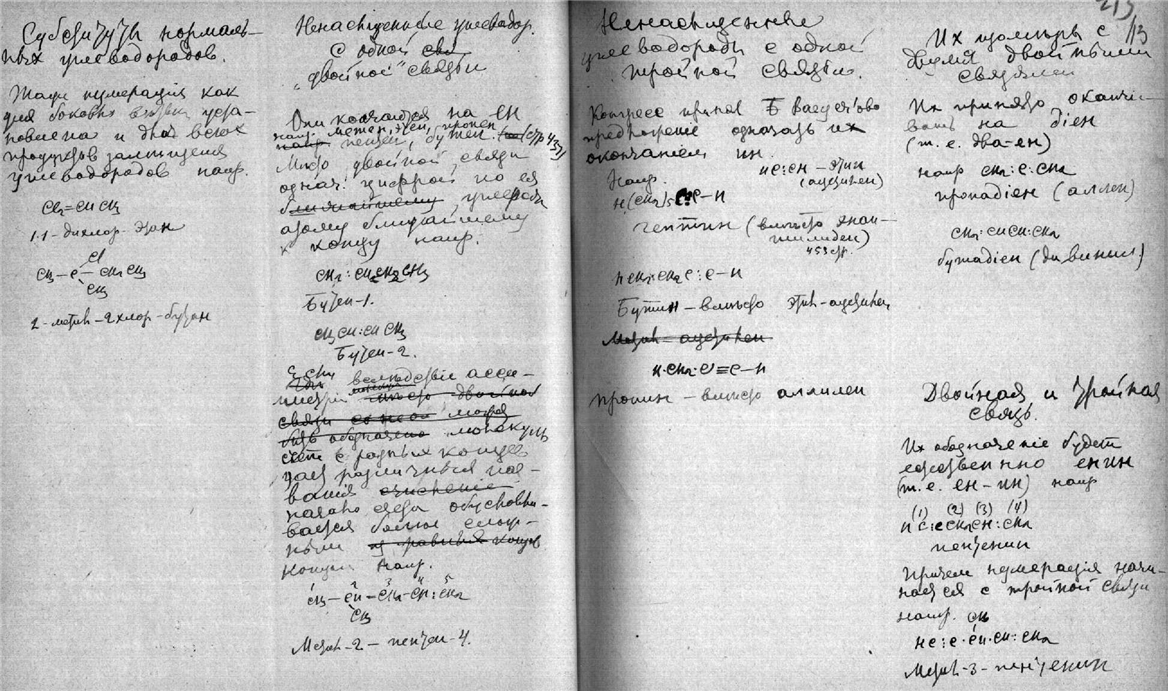 Субституты нормаль-
ных углеводородов.
Такая нумерация как
для боковых
и для всех
продуктов замещения
углеводородов напр.
1.1-дихлор-этан
Cl
CH₃ – C – CH₂ CH₃
CH₃
2-метил-2 хлор-бутан
Ненасыщенные углевод.
С одной
"двойной" связью
Они кончаются на ен
напр. метен, этен, пропен
пентен, бутен. (стр 453)
Место двойной связи
одной цифрой по ея
углерода
ближайшему
к концу напр.
CH₂:CH CH₂ CH₃
Бутен-1.
CH₃ CH:CH CH₃
Бутен-2.
Если вследствие асси-
метрии
молекулы
счет с разных концов
дает различныя наз-
вания
начало счета обусловли-
вается более слож-
ным
концом напр.
1 2 3 4 5
CH₃ – CH – CH₂ – CH:CH₂
CH₃
Метил-2 – пентен-4.
Ненасыщенные
углеводороды с одной
тройной связью.
Конгресс принял
предложение обозначать их
окончанием ин.
Напр. HC:CH – этин
(ацетилен)
H(CH₂)₅C:C–H
гептин (вместо энан-
тилиден)
453 стр.
H CH₂.CH₂ C:C–H
Бутин – вместо этил-ацетилен
Метил-ацетилен
H.CH₂.C≡C–H
Пропин – вместо аллилен
213
13
Их изомеры с
двумя двойными
связями
Их принято оканчи-
вать на діен
(т.е. два-ен)
напр CH₂:C:CH₂
пропадіен (аллен)
CH₂:CH CH:CH₂
бутадіен (дивинил)
Двойная и тройная
связь.
Их обозначение будет
естественно енин
(т.е. ен-ин) напр
(1) (2) (3) (4)
H C:C CH₂ CH:CH₂
пентенин
Причем нумерация начи-
нается с тройной связи
напр. CH₃
HC:C.CH.CH:CH₂
Метил-3-пентенин